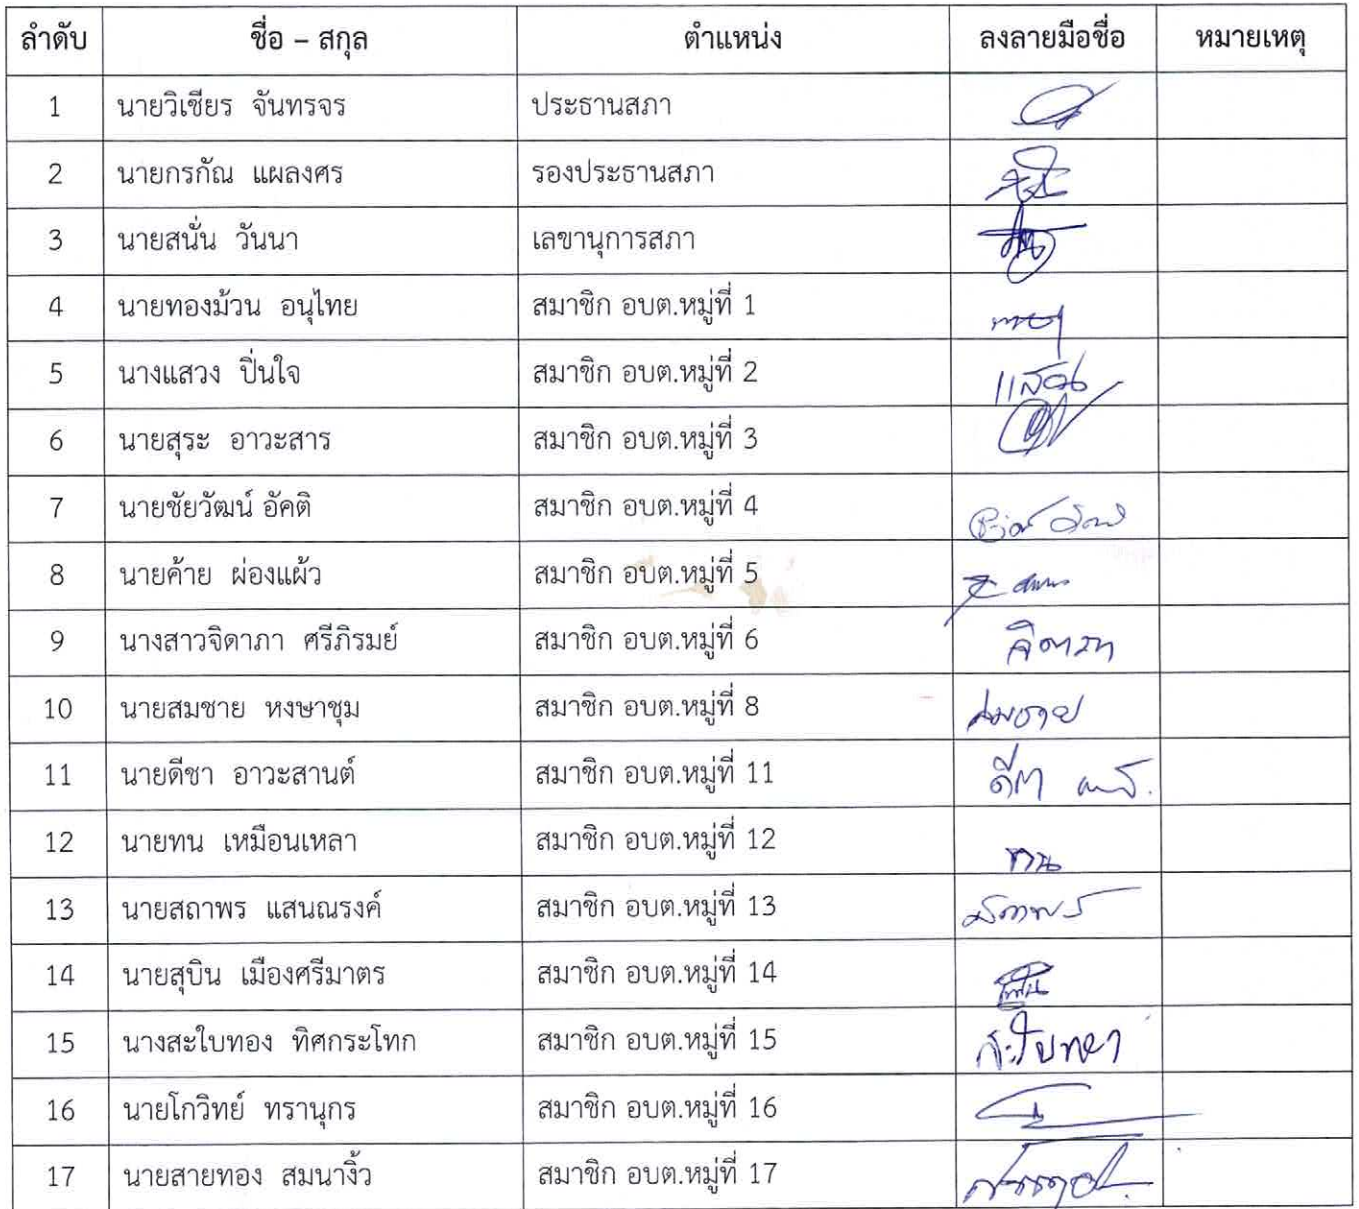 ลำดับ ชื่อ – สกุล ตำแหน่ง ลงลายมือชื่อ หมายเหตุ
1 นายวิเชียร จันทรจร ประธานสภา
2 นายกรกัณ แผลงศร รองประธานสภา
3 นายสนั่น วันนา เลขานุการสภา
4 นายทองม้วน อนุไทย สมาชิก อบต.หมู่ที่ 1
5 นางแสวง ปิ่นใจ สมาชิก อบต.หมู่ที่ 2
6 นายสุระ อาวะสาร สมาชิก อบต.หมู่ที่ 3
7 นายชัยวัฒน์ อัคติ สมาชิก อบต.หมู่ที่ 4
8 นายค้าย ผ่องแผ้ว สมาชิก อบต.หมู่ที่ 5
9 นางสาวจิดาภา ศรีภิรมย์ สมาชิก อบต.หมู่ที่ 6 จิดาภา
10 นายสมชาย หงษาชุม สมาชิก อบต.หมู่ที่ 8 สมชาย
11 นายดีชา อาวะสานต์ สมาชิก อบต.หมู่ที่ 11
12 นายทน เหมือนเหลา สมาชิก อบต.หมู่ที่ 12 ทน
13 นายสถาพร แสนณรงค์ สมาชิก อบต.หมู่ที่ 13 สถาพร
14 นายสุบิน เมืองศรีมาตร สมาชิก อบต.หมู่ที่ 14
15 นางสะใบทอง ทิศกระโทก สมาชิก อบต.หมู่ที่ 15 สะใบทอง
16 นายโกวิทย์ ทรานุกร สมาชิก อบต.หมู่ที่ 16
17 นายสายทอง สมนางิ้ว สมาชิก อบต.หมู่ที่ 17